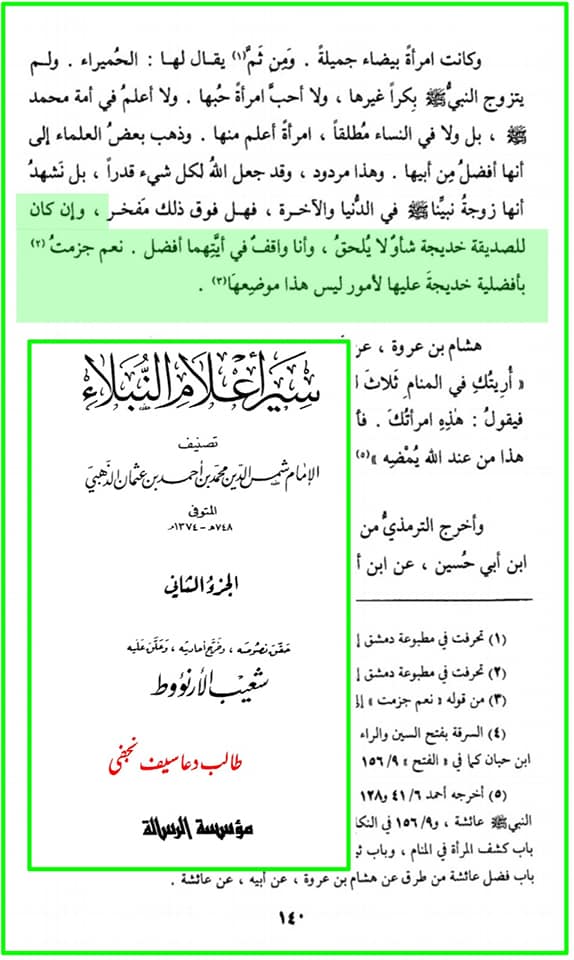 وكانت امرأة بيضاء جميلة . ومِن ثَمَّ(١) يقال لها : الحُميراء . ولم
يتزوج النبيُّ ﷺ بِكراً غيرها ، ولا أحبَّ امرأةً حُبها . ولا أعلمُ في أمة محمد
ﷺ ، بل ولا في النساء مُطلقاً ، امرأةً أعلم منها . وذهب بعضُ العلماء إلى
أنها أفضلُ مِن أبيها . وهذا مردود ، وقد جعل اللهُ لكل شيء قدراً ، بل نَشهدُ
أنها زوجةُ نبيِّنا ﷺ في الدُّنيا والآخرة ، فهل فوق ذلك مَفخر ، وإن كان
للصديقة خديجة شأوٌ لا يُلحقُ ، وأنا واقفٌ في أيَّتِهما أفضل . نعم جزمتُ(٢)
بأفضلية خديجةَ عليها لأمور ليس هذا موضِعهَا(٣) .
هشام بن عروة ، عن
« أُريتُكِ في المنامِ ثَلاثَ
فيقولُ : هٰذِهِ امرأتُكَ .
هذا من عند الله يُمْضِهِ »(٥)
وأخرج الترمذيُّ من
ابن أبي حُسين ، عن ابن
سير أعلام النبلاء
تصنيف
الإمام شمس الدين محمد بن أحمد بن عثمان الذهبي
المتوفى
٧٤٨هـ - ١٣٧٤م
الجزء الثاني
حقق نصوصه ، وخرج أحاديثه ، وعلق عليه
شعيب الأرنؤوط
طالب دعا سیف نجفی
مؤسسة الرسالة
(١) تحرفت في مطبوعة دمشق
(٢) تحرفت في مطبوعة دمشق
(٣) من قوله « نعم جزمت »
(٤) السرقة بفتح السين والراء
ابن حبان كما في « الفتح » ٩/ ١٥٦
(٥) أخرجه أحمد ٦/ ٤١ و١٢٨
النبي ﷺ عائشة ، و٩/ ١٥٦ في
باب كشف المرأة في المنام ، وباب
باب فضل عائشة من طرق عن هشام بن عروة ، عن أبيه ، عن عائشة .
١٤٠